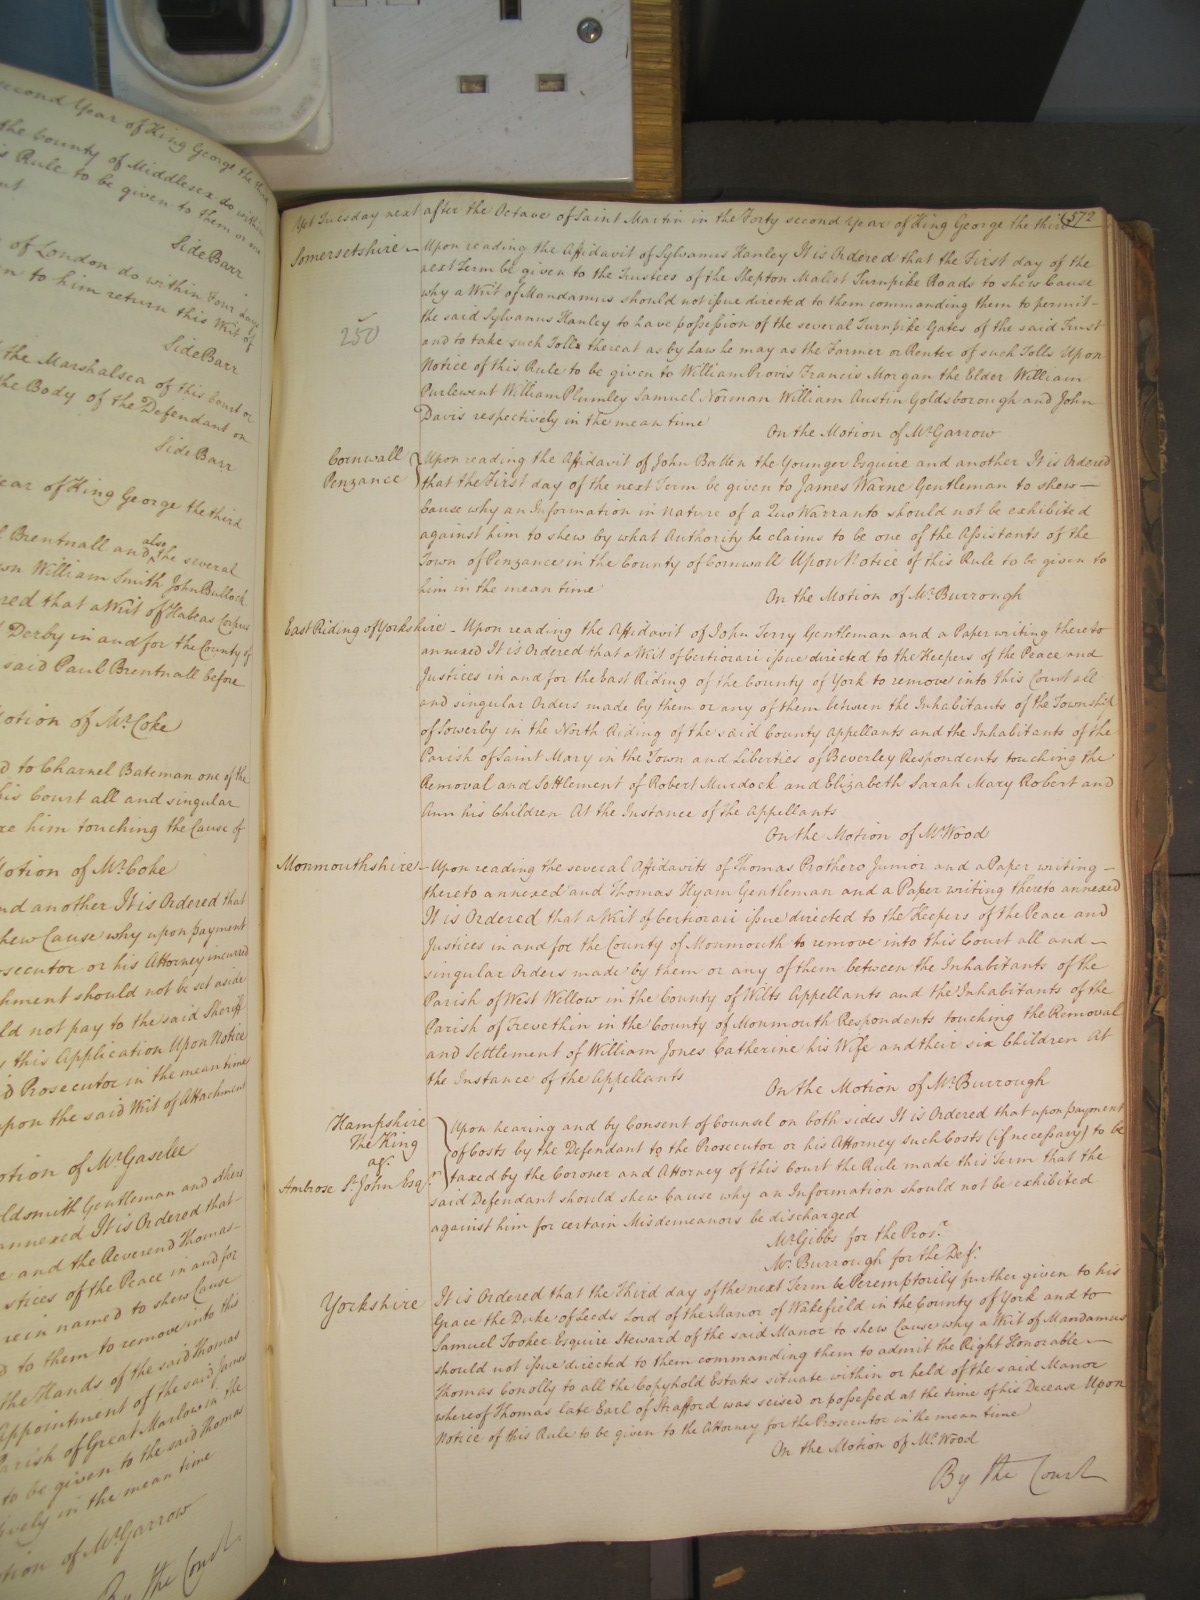 second Year of King George the third
the County of Middlesex do within
is Rule to be given to them or
Side Barr
of London do within Four days
to him return this Writ of
Side Barr
the Marshalsea of this Court or
the Body of the Defendant on
Side Barr
Year of King George the third
Brentnall and also the several
William Smith John Bullock
red that a Writ of Habeas Corpus
Derby in and for the County of
said Paul Brentnall before
Motion of Mr. Coke
to Charnel Bateman one of the
his Court all and singular
him touching the Cause of
Motion of Mr. Coke
and another It is Ordered that
shew Cause why upon payment
Prosecutor or his Attorney incurred
should not be set aside
ld not pay to the said Sheriff
this Application Upon Notice
Prosecutor in the mean time
upon the said Writ of Attachment
Motion of Mr. Gaselee
Goldsmith Gentleman and others
annexed It is Ordered that
and the Reverend Thomas
Justices of the Peace in and for
herein named to shew Cause
to them to remove into this
the Hands of the said Thomas
Appointment of the said James
Parish of Great Marlow in the
to be given to the said Thomas
in the mean time
Motion of Mr. Garrow
By the Court
Yet Tuesday next after the Octave of Saint Martin in the Forty second Year of King George the third 572
Somersetshire - Upon reading the Affidavit of Sylvanus Hanley It is Ordered that the First day of the
next Term be given to the Trustees of the Shepton Malist Turnpike Roads to shew Cause
why a Writ of Mandamus should not issue directed to them commanding them to permit
250
the said Sylvanus Hanley to have possession of the several Turnpike Gates of the said Trust
and to take such Tolls thereat as by Law he may as the Farmer or Renter of such Tolls Upon
Notice of this Rule to be given to William Provis Francis Morgan the Elder William
Purlewent William Plumley Samuel Norman William Austin Goldsborough and John
Davis respectively in the mean time
On the Motion of Mr. Garrow
Cornwall
Penzance
Upon reading the Affidavit of John Batten the Younger Esquire and another It is Ordered
that the First day of the next Term be given to James Warne Gentleman to shew
Cause why an Information in nature of a Quo Warranto should not be exhibited
against him to shew by what Authority he claims to be one of the Assistants of the
Town of Penzance in the County of Cornwall Upon Notice of this Rule to be given to
him in the mean time
On the Motion of Mr. Burrough
East Riding of Yorkshire - Upon reading the Affidavit of John Terry Gentleman and a Paper writing thereto
annexed It is Ordered that a Writ of Certiorari issue directed to the Keepers of the Peace and
Justices in and for the East Riding of the County of York to remove into this Court all
and singular Orders made by them or any of them between the Inhabitants of the Township
of Sowerby in the North Riding of the said County Appellants and the Inhabitants of the
Parish of Saint Mary in the Town and Liberties of Beverley Respondents touching the
Removal and Settlement of Robert Murdock and Elizabeth Sarah Mary Robert and
Ann his Children At the Instance of the Appellants
On the Motion of Mr. Wood
Monmouthshire - Upon reading the several Affidavits of Thomas Prothero Junior and a Paper writing
thereto annexed and Thomas Hyam Gentleman and a Paper writing thereto annexed
It is Ordered that a Writ of Certiorari issue directed to the Keepers of the Peace and
Justices in and for the County of Monmouth to remove into this Court all and
singular Orders made by them or any of them between the Inhabitants of the
Parish of West Wellow in the County of Wilts Appellants and the Inhabitants of the
Parish of Trevethin in the County of Monmouth Respondents touching the Removal
and Settlement of William Jones Catherine his Wife and their six Children At
the Instance of the Appellants
On the Motion of Mr. Burrough
Hampshire
The King
agt.
Ambrose St. John Esqr.
Upon hearing and by Consent of Counsel on both sides It is Ordered that upon payment
of Costs by the Defendant to the Prosecutor or his Attorney such Costs (if necessary) to be
taxed by the Coroner and Attorney of this Court the Rule made this Term that the
said Defendant should shew Cause why an Information should not be exhibited
against him for certain Misdemeanors be discharged
Mr. Gibbs for the Prosr.
Mr. Burrough for the Deft.
Yorkshire
It is Ordered that the Third day of the next Term be Peremptorily further given to his
Grace the Duke of Leeds Lord of the Manor of Wakefield in the County of York and to
Samuel Tooker Esquire Steward of the said Manor to shew Cause why a Writ of Mandamus
should not issue directed to them commanding them to admit the Right Honorable
Thomas Conolly to all the Copyhold Estates situate within or held of the said Manor
whereof Thomas late Earl of Strafford was seised or possessed at the time of his Decease Upon
Notice of this Rule to be given to the Attorney for the Prosecutor in the mean time
On the Motion of Mr. Wood
By the Court